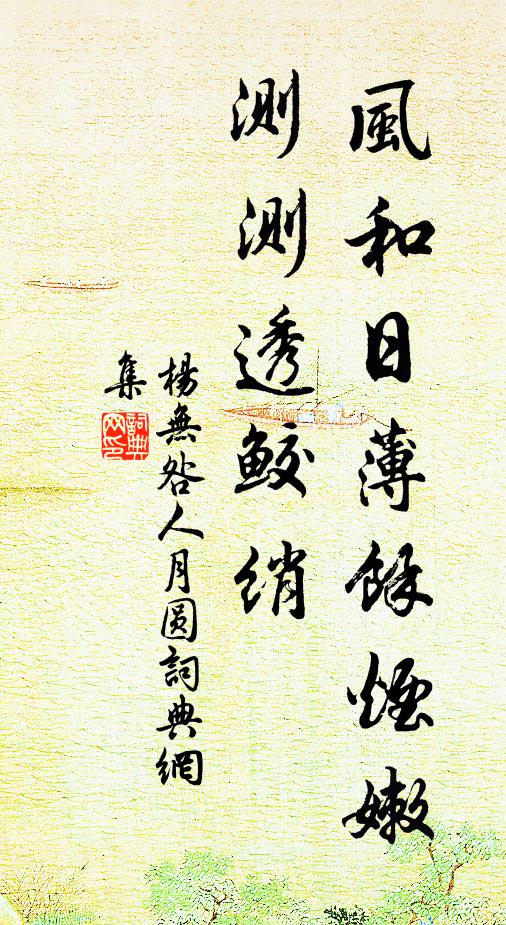 風和日薄餘煙嫩
測測透鮫綃
楊無咎人月圓詞典網
集
詞典
网印